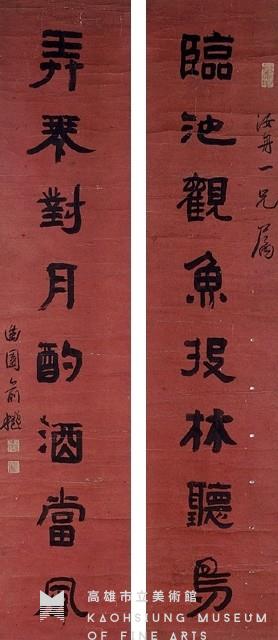 汝舟一兄屬
臨池觀魚投林聽鳥
弄琴對月酌酒當風
曲園俞樾
高雄市立美術館
KAOHSIUNG MUSEUM
OF FINE ARTS